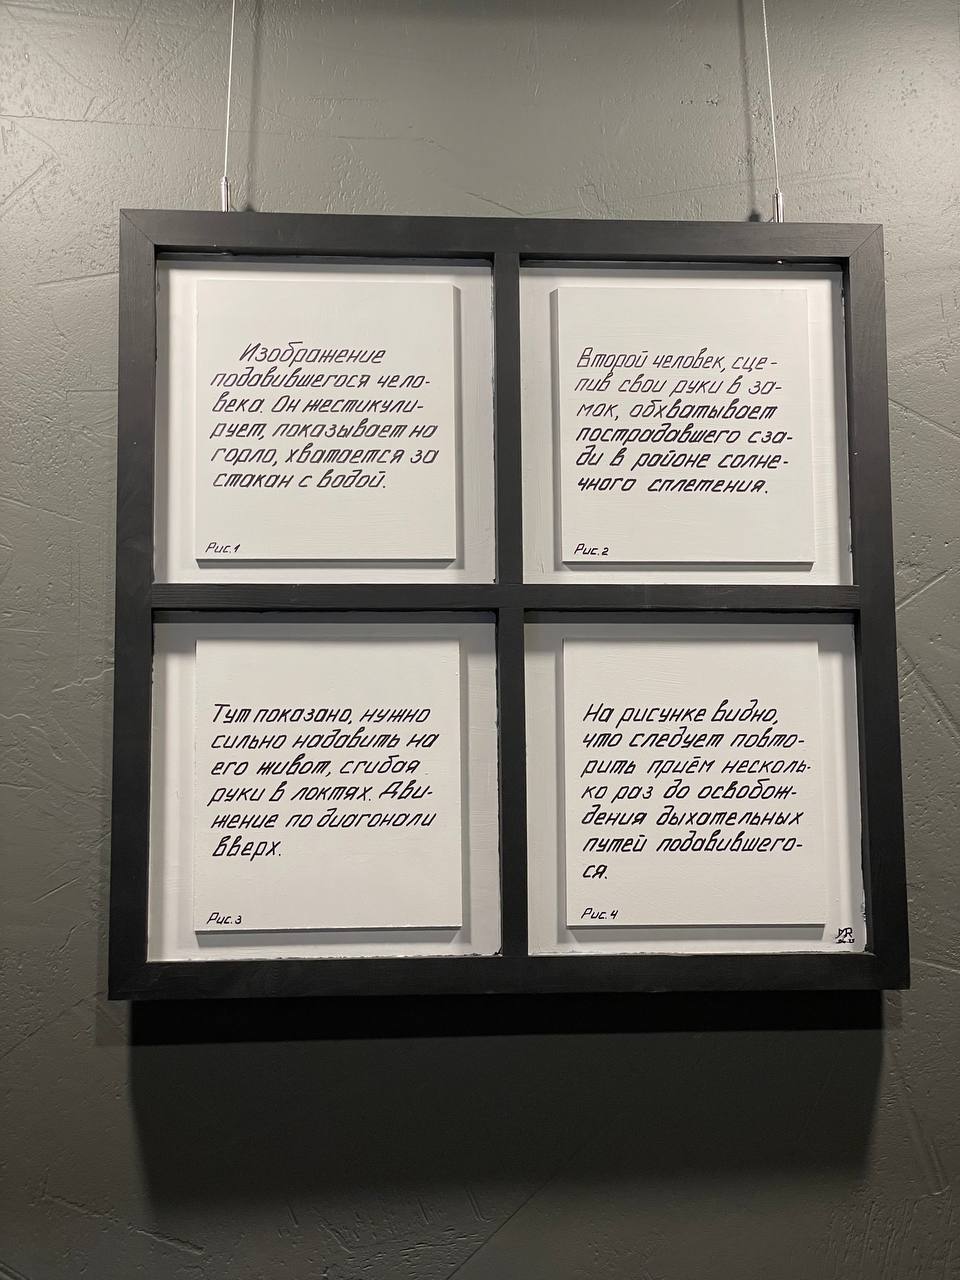 Изображение
подавившегося чело-
века. Он жестикули-
рует, показывает на
горло, хватается за
стакан с водой.
Рис.1
Второй человек, сце-
пив свои руки в за-
мок, обхватывает
пострадавшего сза-
ди в районе солне-
чного сплетения.
Рис.2
Тут показано, нужно
сильно надавить на
его живот, сгибая
руки в локтях. Дви-
жение по диагонали
вверх.
Рис.3
На рисунке видно,
что следует повто-
рить приём несколь-
ко раз до освобож-
дения дыхательных
путей подавившего-
ся.
Рис.4